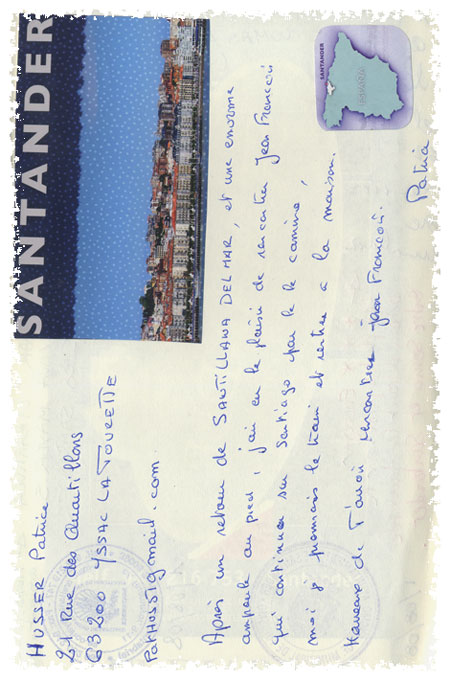 SANTANDER
SANTANDER
ESPAÑA
HUSSER Patrice
63200 YSSAC LA TOURETTE
Pathussigmail.com
Après un retour de SANTILLANA DEL MAR, et une enorme
ampoule au pied, j'ai eu le plaisir de rencontrer Jean Francois
qui continue sur Santiago par le camino,
moi je prendrais le train et rentre à la maison.
Heureux de t'avoir rencontrer Jean Francois.
Patrice